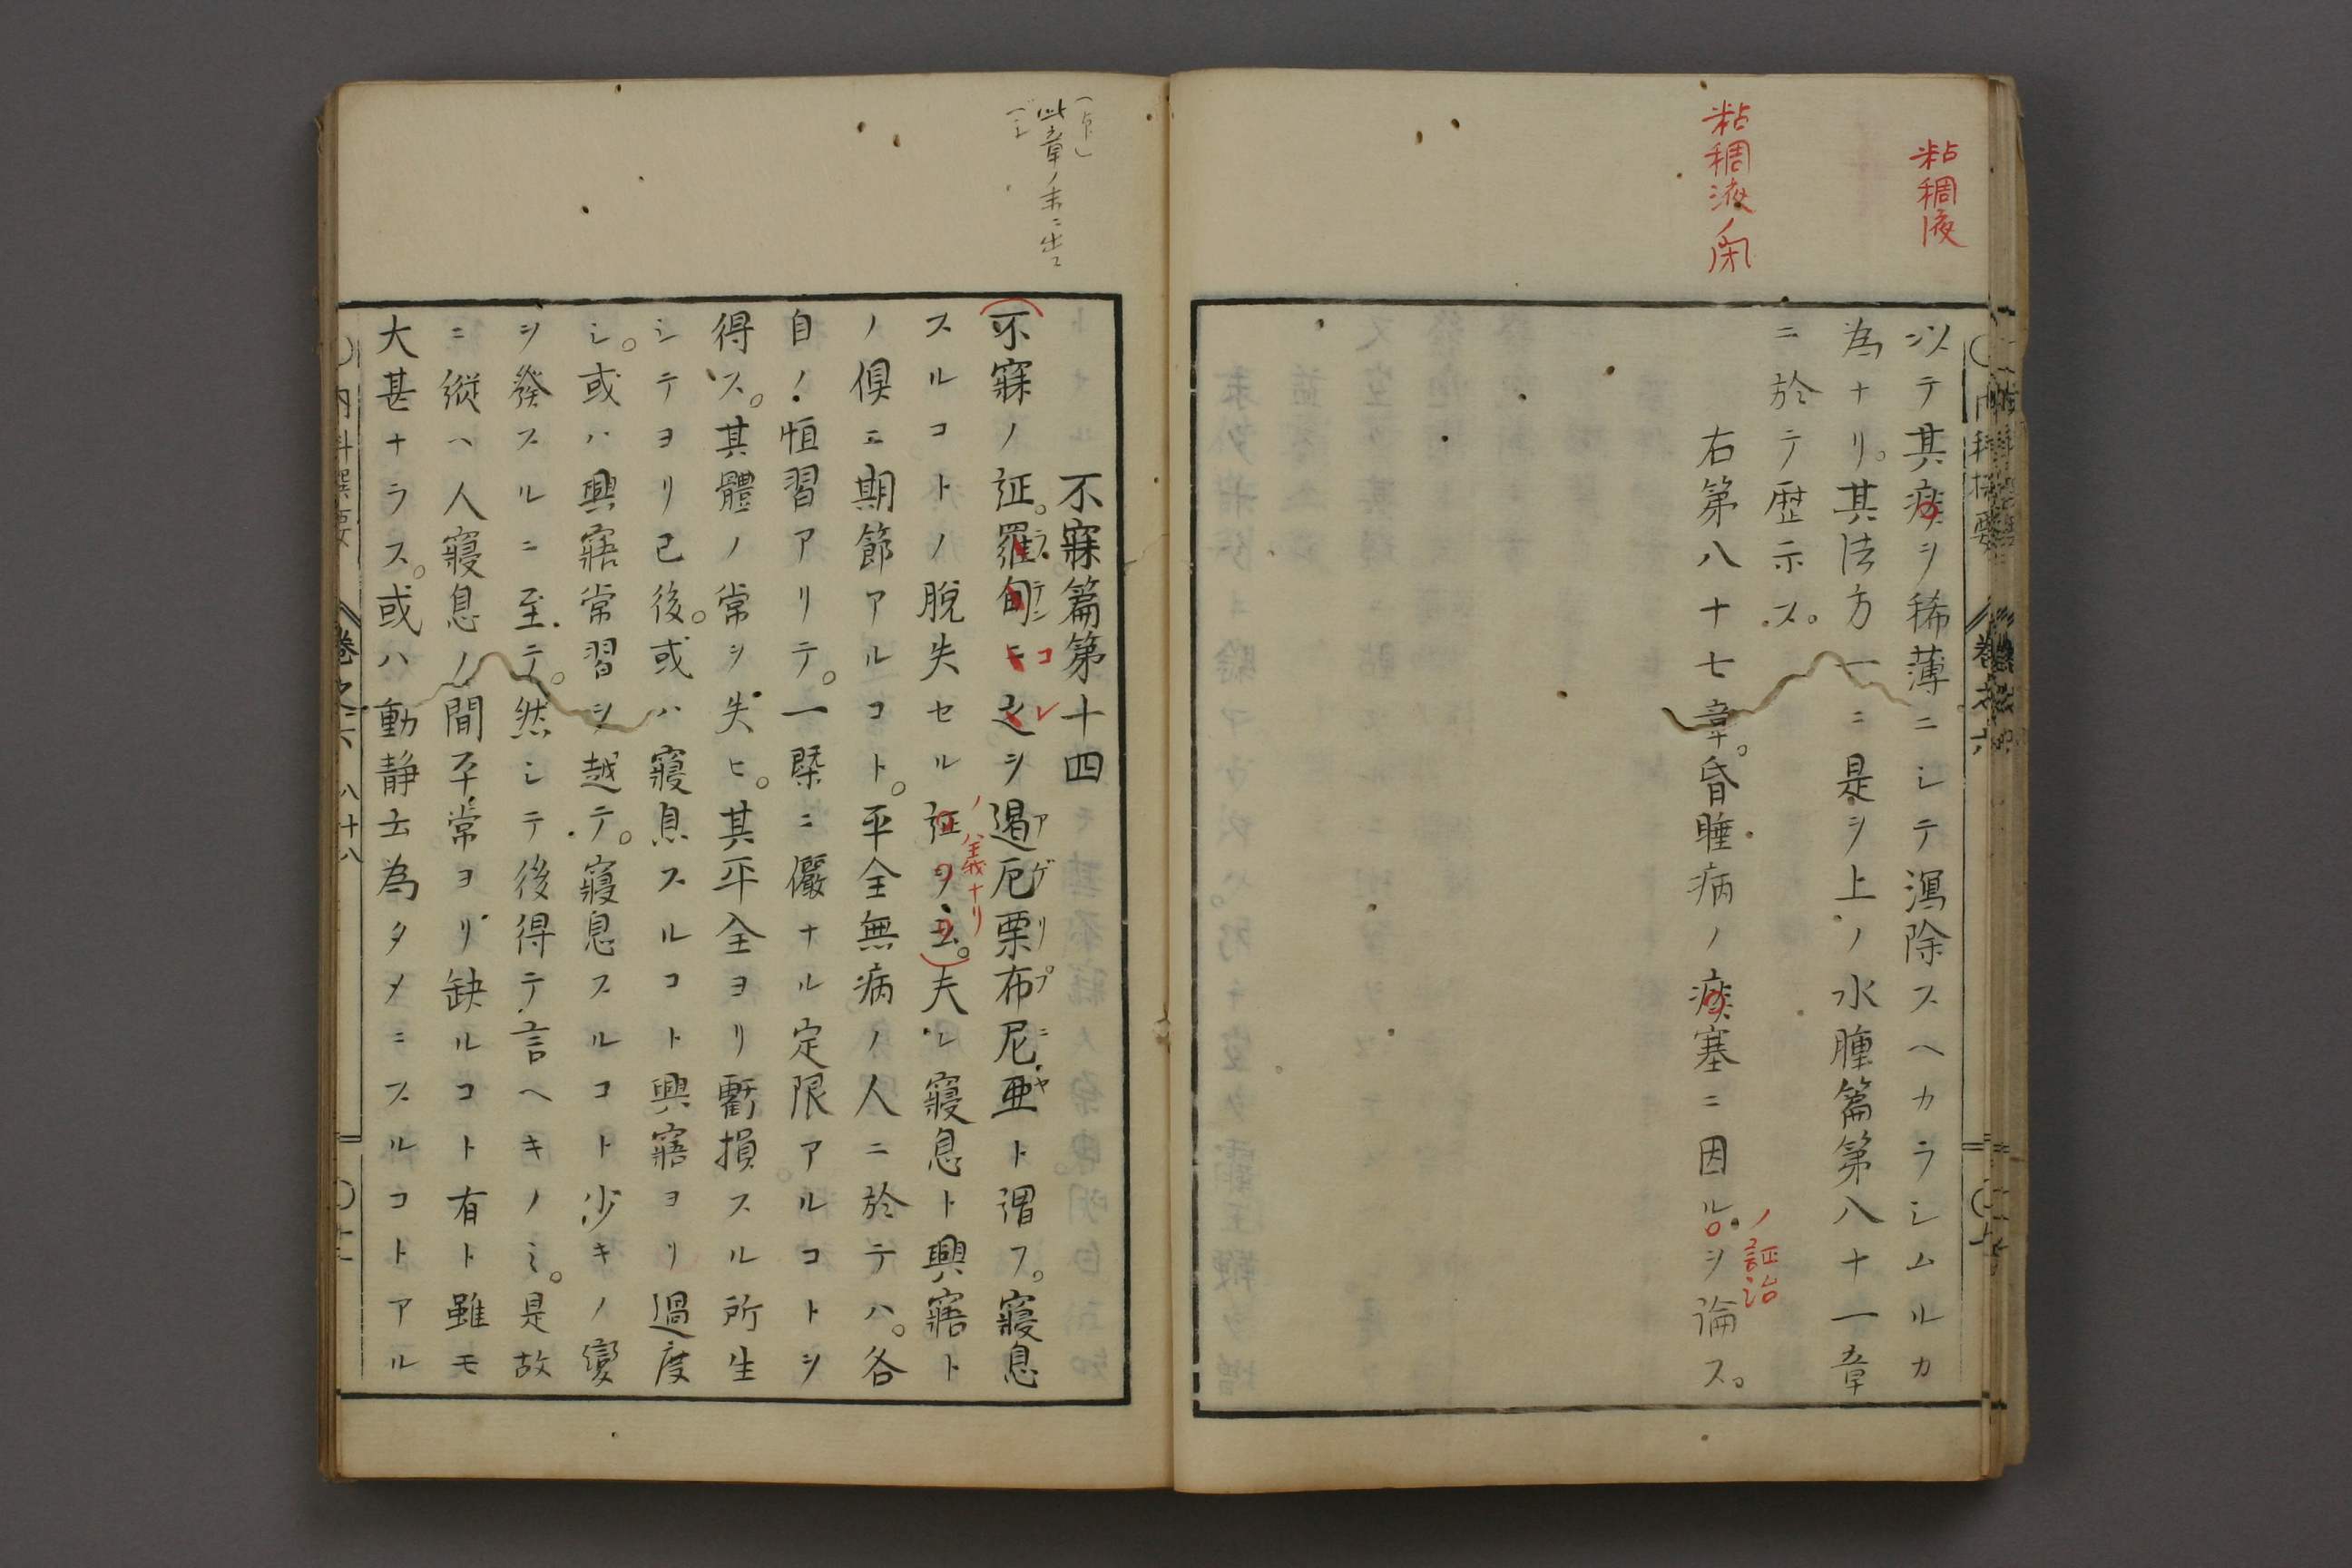 粘稠液
粘稠液ノ
以テ其痰ヲ稀薄ニシテ瀉除スヘカラシムルカ
為ナリ。其法方一一ニ是ヲ上ノ水腫篇第八十一章
ニ於テ歴示ス。
右第八十七章。昏睡病ノ痰塞ニ因ルヲ論ス。
ノ証治
此章ノ末ニ出
不寐篇第十四
不寐ノ証。羅甸ニ之ヲ遏厄栗布尼亜ト謂フ。寢息
ラ テン
コレ
アゲリプニヤ
スルコトノ脱失セル証ヲ云。夫レ寢息ト興寤ト
ノ義ナリ
ノ倶ニ期節アルコト。平全無病ノ人ニ於テハ。各
自ノ恒習アリテ。一槩ニ儼ナル定限アルコトヲ
得ス。其體ノ常ヲ失ヒ。其平全ヨリ虧損スル所生
シテヨリ已後。或ハ寢息スルコト興寤ヨリ過度
シ。或ハ興寤常習ヲ越テ。寢息スルコト少キノ變
ヲ發スルニ至テ。然シテ後得テ言ヘキノミ。是故
ニ縦ヘ人寢息ノ間平常ヨリ缺ルコト有ト雖モ
大甚ナラス。或ハ動静云為タメニスルコトアル
内科撰要
卷之六
八十八